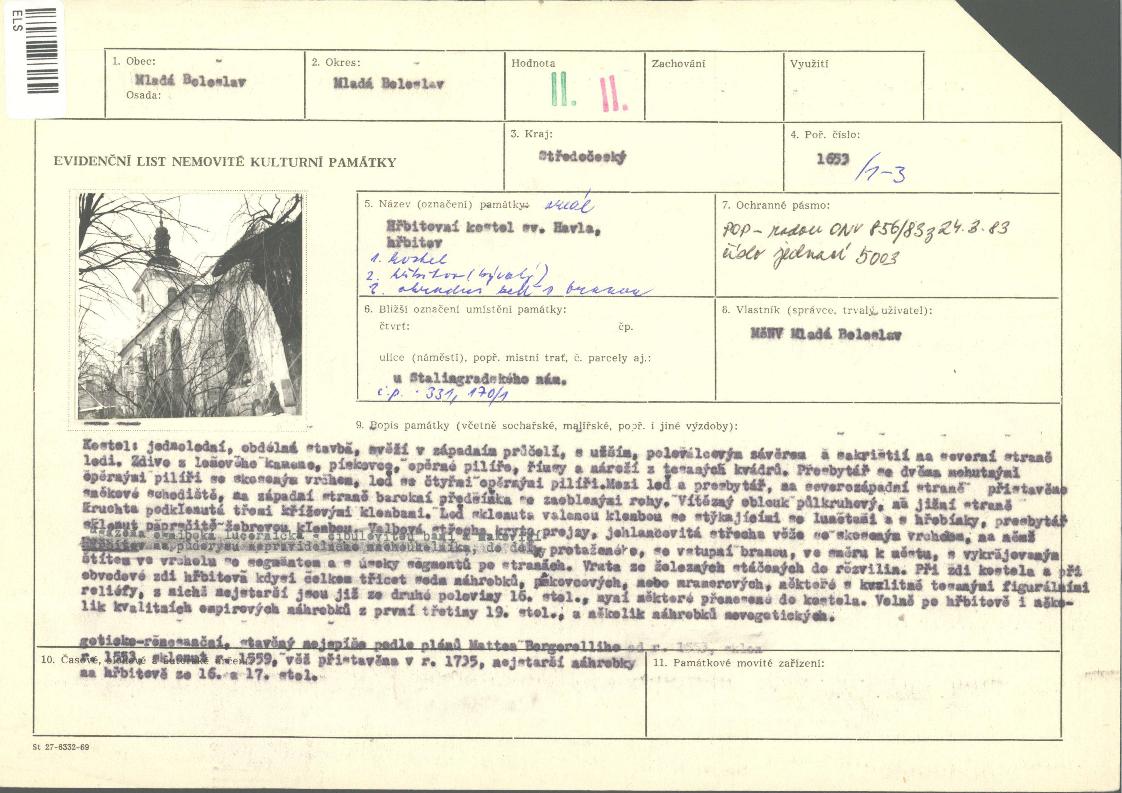 ELS
1. Obec:
Mladá Boleslav
Osada:
2. Okres:
Mladá Boleslav
Hodnota
II. II.
Zachování
Využití
EVIDENČNÍ LIST NEMOVITÉ KULTURNÍ PAMÁTKY
3. Kraj:
Středočeský
4. Poř. číslo:
1653 /1-3
5. Název (označení) památky: areál
Hřbitovní kostel sv. Havla,
hřbitov
1. kostel
2. hřbitov (bývalý)
3. ohradní zeď s branou
7. Ochranné pásmo:
POP - radou ONV 856/83 z 24.3.83
číslo jednací 5003
6. Bližší označení umístění památky:
čtvrť: čp.
ulice (náměstí), popř. místní trať, č. parcely aj.:
u Stalingradského nám.
č.p. 331, 170/1
8. Vlastník (správce, trvalý uživatel):
MěNV Mladá Boleslav
9. Popis památky (včetně sochařské, malířské, popř. i jiné výzdoby):
Kostel: jednolodní, obdélná stavba, s věží v západním průčelí, s užším, poloválcovým závěrem a sakristií na severní straně
lodi. Zdivo z lomového kamene, pískovce, opěrné pilíře, římsy a nároží z tesaných kvádrů. Presbytář se dvěma mohutnými
opěrnými pilíři se skoseným vrchem, loď se čtyřmi opěrnými pilíři. Mezi lodí a presbytář, na severozápadní straně přistavěno
šnekové schodiště, na západní straně barokní předsíňka se zaoblenými rohy. Vítězný oblouk půlkruhový, na jižní straně
Kruchta podklenutá třemi křížovými klenbami. Loď sklenuta valenou klenbou se stýkajícími se lunetami a s hřebínky, presbytář
sklenut paprsčitě žebrovou klenbou. Valbová střecha kryta prejzy, jehlancovitá střecha věže se skoseným vrchem, na němž
osazena osmiboká lucernička s cibulovitou bání a makovicí
Hřbitov na půdorysu nepravidelného mnohoúhelníka, do délky protaženého, se vstupní branou, ve směru k městu, s vykrajovaným
štítem ve vrcholu se segmentem a s úseky segmentů po stranách. Vrata ze železných stáčených do rozvilin. Při zdi kostela a při
obvodové zdi hřbitova kdysi celkem třicet sedm náhrobků, pískovcových, nebo mramorových, některé s kvalitně tesanými figurálními
reliéfy, z nichž nejstarší jsou již ze druhé poloviny 16. stol., nyní některé přenesené do kostela. Volně po hřbitově i něko-
lik kvalitních empírových náhrobků z první třetiny 19. stol., a několik náhrobků novogotických.
goticko-renesanční, stavěný nejspíše podle plánů Mattea Borgorelliho od r. 1553, sklen
10. Časové, slohové a autorské určení:
v r. 1559, věž přistavěna v r. 1735, nejstarší náhrobky
na hřbitově ze 16. a 17. stol.
11. Památkové movité zařízení:
St 27-6332-69